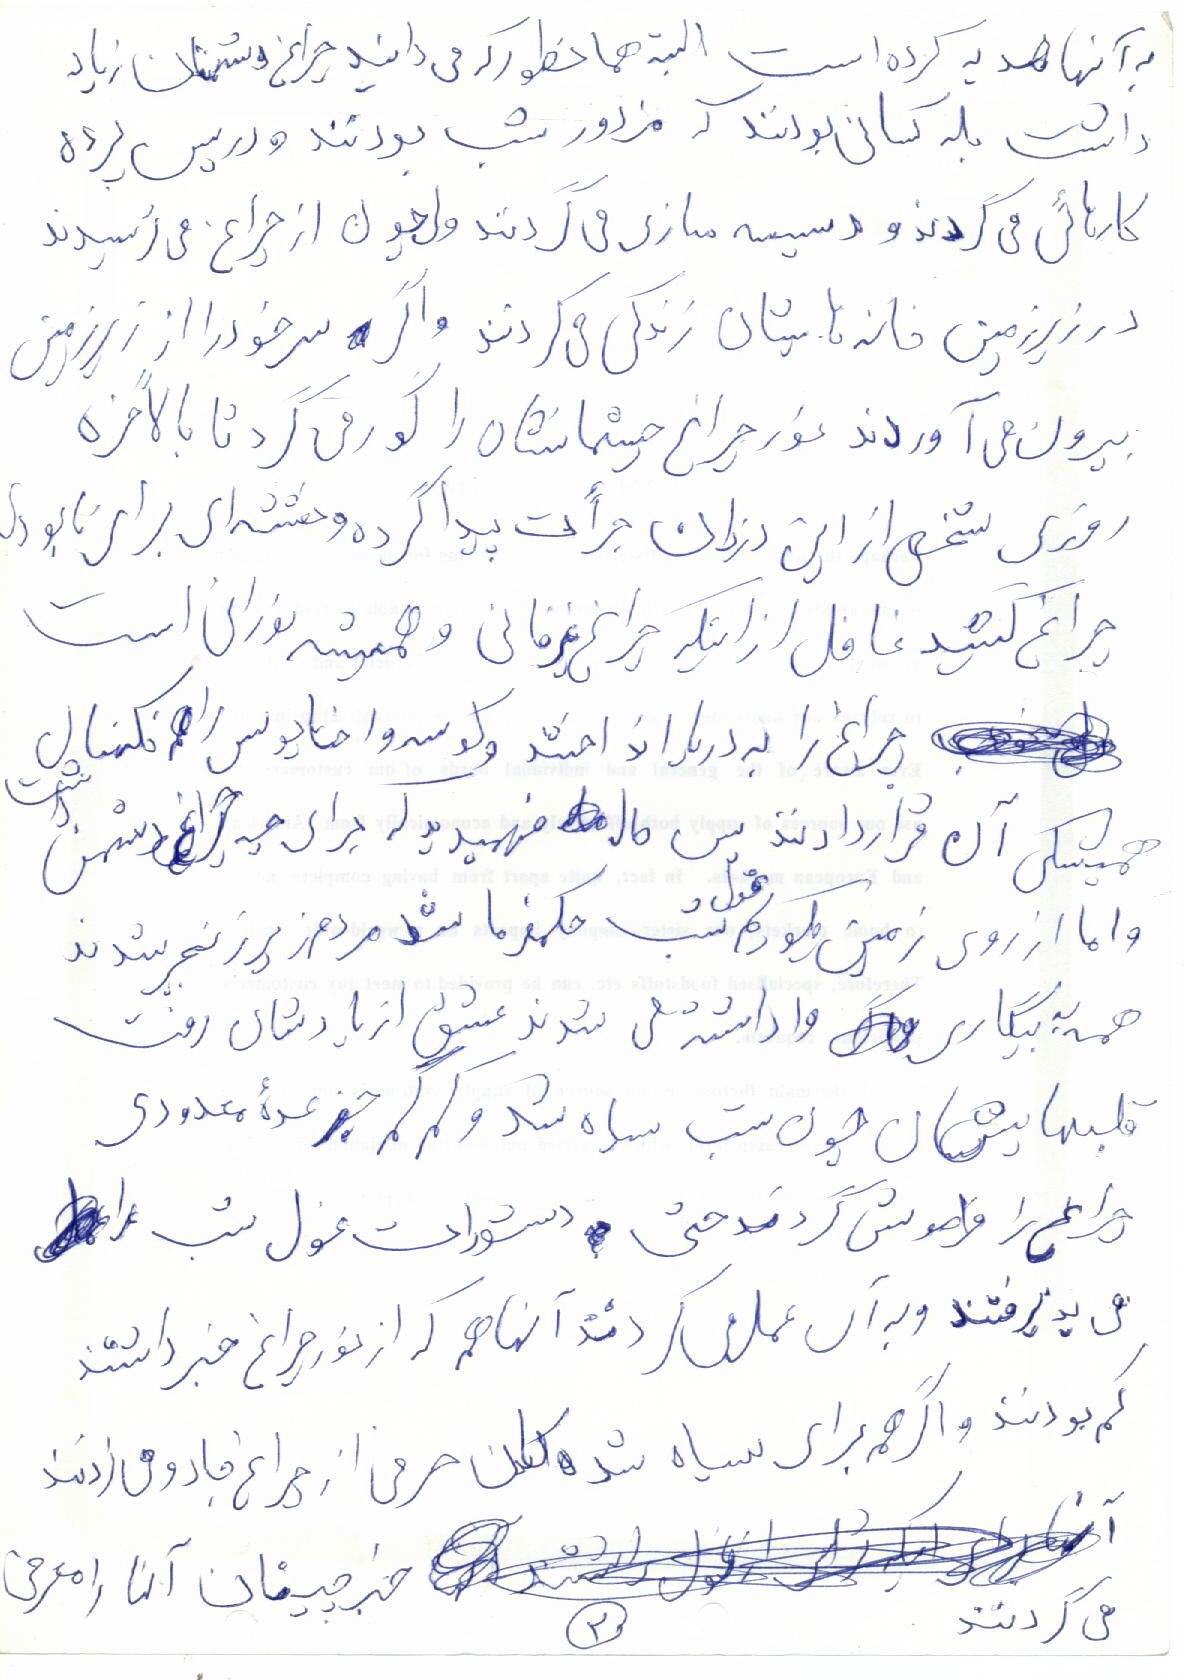 به آنها هدیه کرده است البته همانطور که می دانید چراغ دشمنان زیاد
داشت بله کسانی بودند که مزدور شب بودند و در پس پرده
کارهائی می کردند و دسیسه سازی می کردند ولی چون از چراغ می ترسیدند
در زیرزمین خانه هایشان زندگی می کردند و اگر سر خود را از زیرزمین
بیرون می آوردند نور چراغ چشمانشان را کور می کرد تا بالاخره
روزی شخصی از این دزدان جرأت پیدا کرده و نقشه ای برای نابودی
چراغ کشید غافل از اینکه چراغ غیرفانی و همیشه نورانی است
چراغ را به دریا انداختند و کوسه و اختاپوس را هم نگهبان
همیشگی آن قرار دادند پس حالا فهمیدید که برای چه چراغ دشمن داشت
و اما از روی زمین بگویم غول شب حکمفرما شد مردم زیر زنجیر شدند
همه به بیگاری واداشته می شدند عشق از یادشان رفت
قلبهایشان چون شب سیاه شد و کم کم جز عدهٔ معدودی
چراغ را فراموش کردند حتی دستورات غول شب را
می پذیرفتند و به آن عمل می کردند آنها هم که از نور چراغ خبر داشتند
کم بودند و اگر هم برای سیاه شده حرفی از چراغ جادو می زدند
خبرچینان آنها را معرفی
می کردند
۳